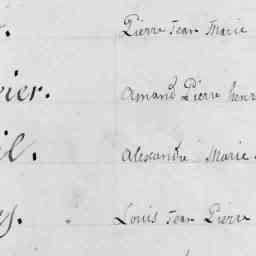 Pierre Jean Marie
vier. Amand Pierre henr
il. Alexandre Marie
s. Louis Jean Pierre